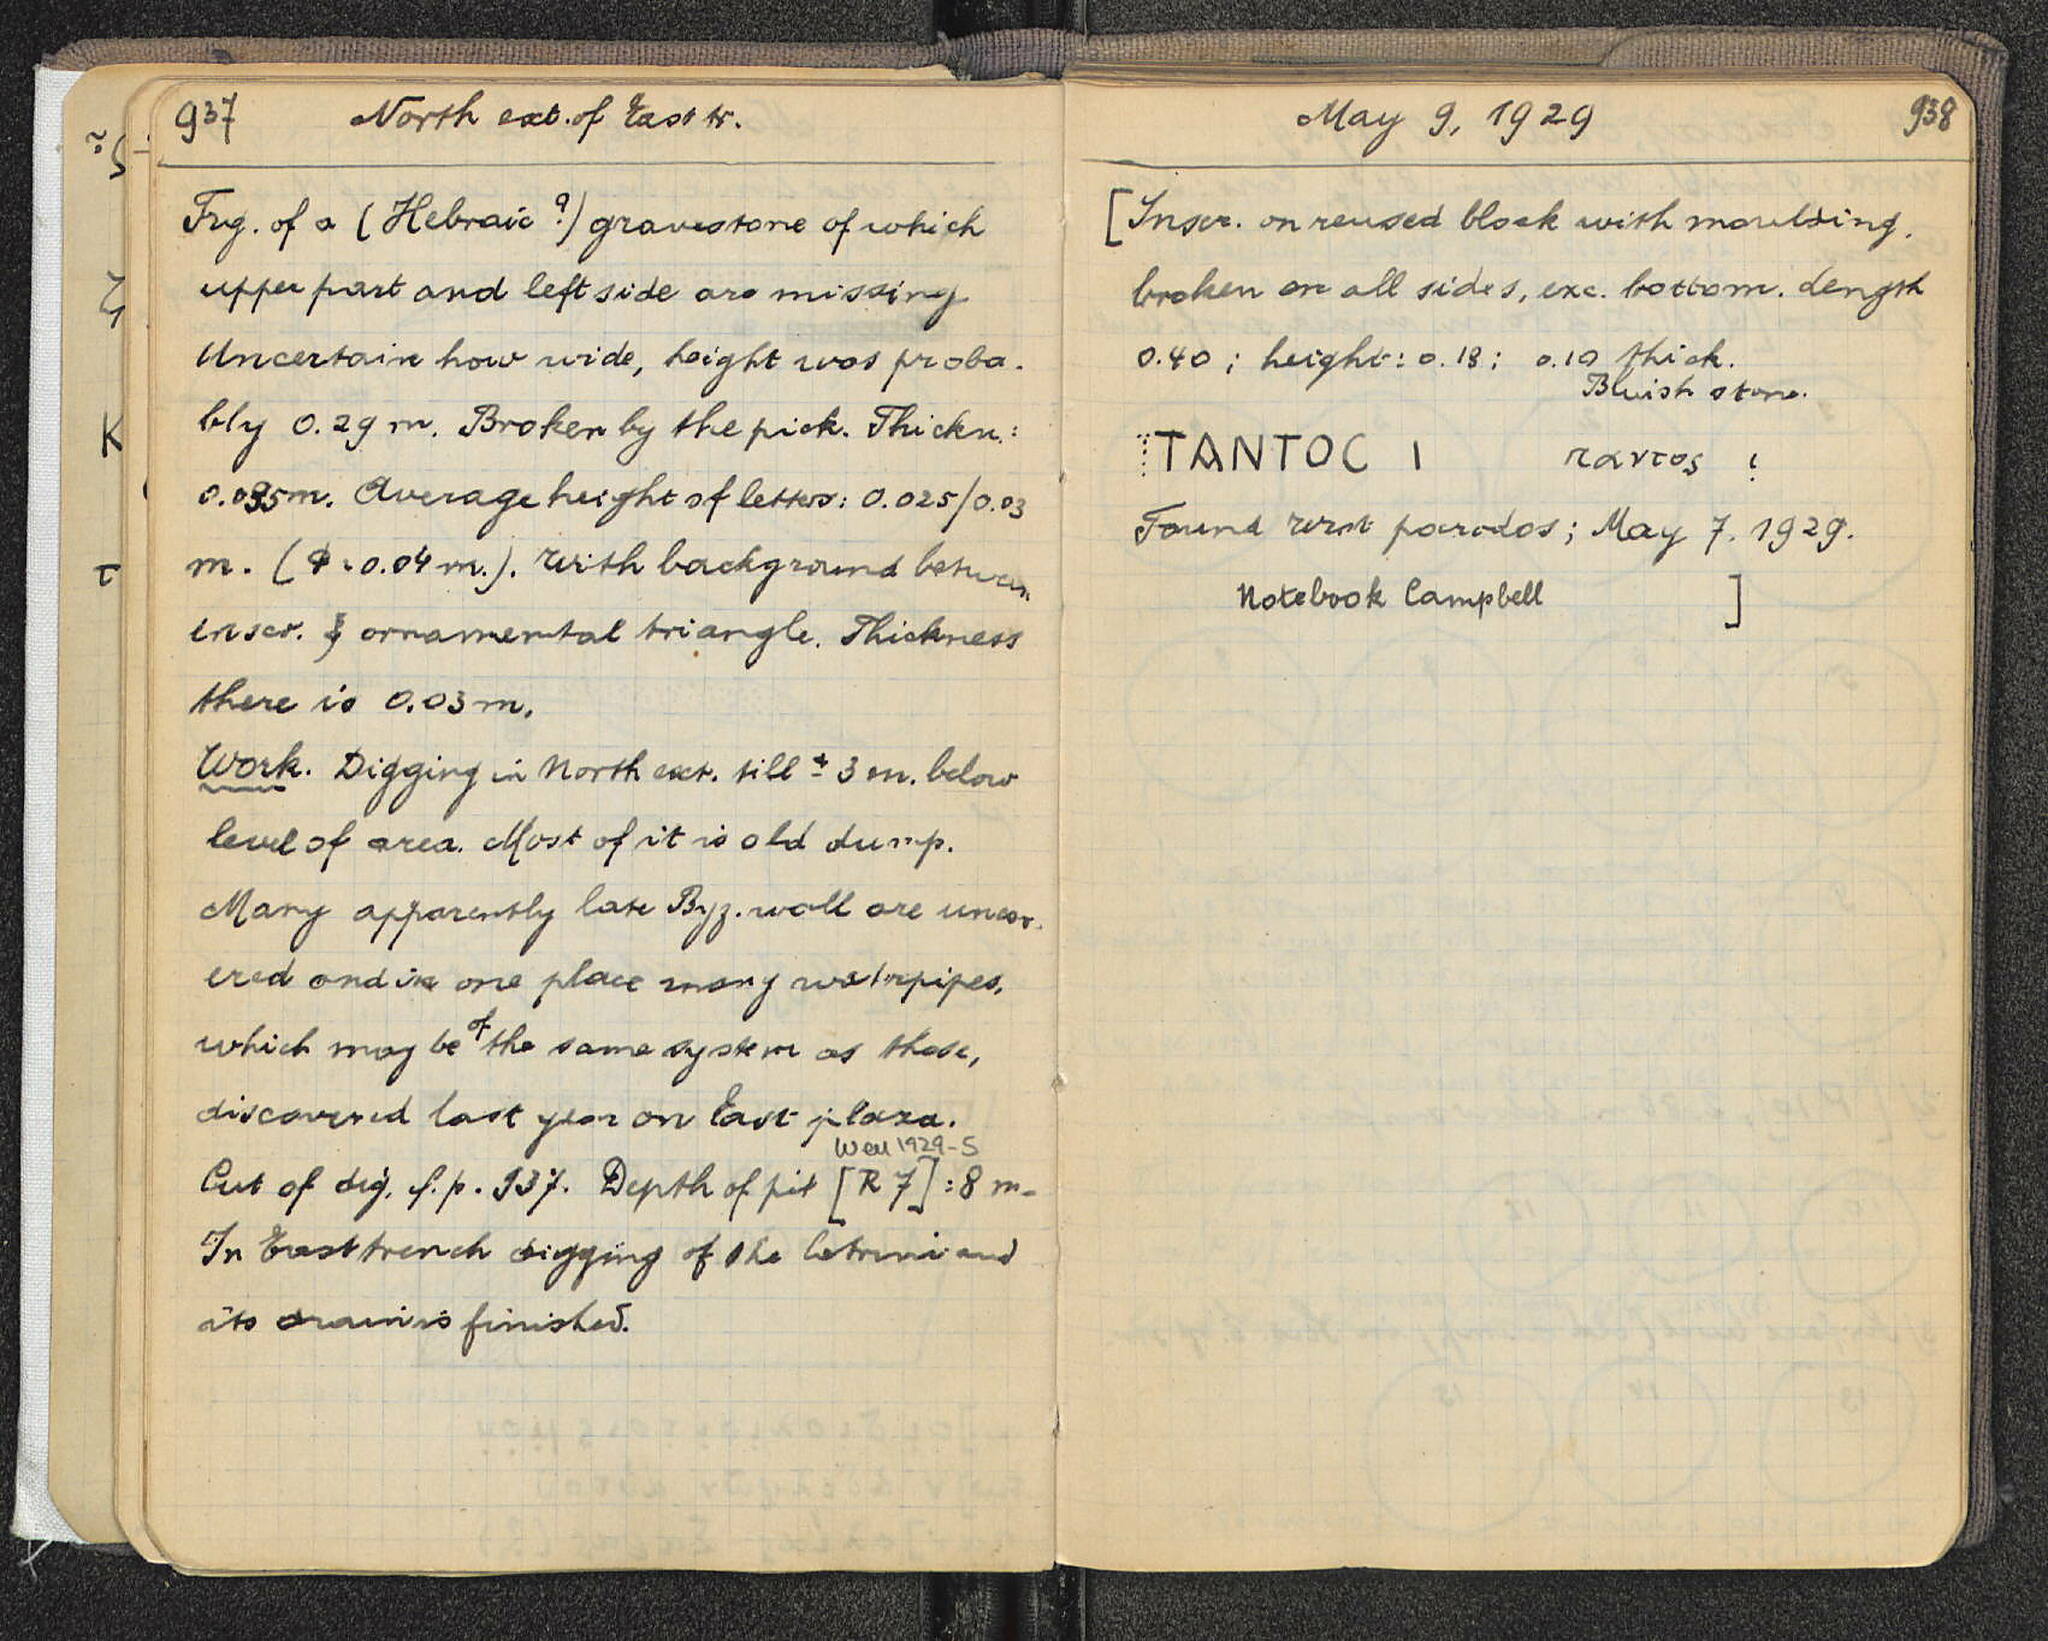 937 North ext. of East tr.
Frg. of a (Hebraic ?) gravestone of which
upper part and left side are missing
Uncertain how wide, height was proba-
bly 0.29 m. Broken by the pick. Thickn.:
0.035m. Average height of letters: 0.025/0.03
m. (Φ : 0.04 m.). With background between
inscr. & ornamental triangle. Thickness
there is 0.03 m.
Work. Digging in North ext. till ± 3 m. below
level of area. Most of it is old dump.
Many apparently late Byz. wall are uncov-
ered and in one place many waterpipes,
which may be of the same system as those,
discovered last year on East plaza.
Well 1929-5
Cut of dig. cf. p. 937. Depth of pit [R 7] : 8 m.
In East trench digging of the latrine and
its drain is finished.
May 9, 1929 938
[Inscr. on reused block with moulding.
broken on all sides, exc. bottom. Length
0.40 ; height: 0.18 ; 0.10 thick.
Bluish stone.
ΤΑΝΤΟC Ι ταντος ι
Found west parodos; May 7. 1929.
Notebook Campbell ]
ζ
K
τ